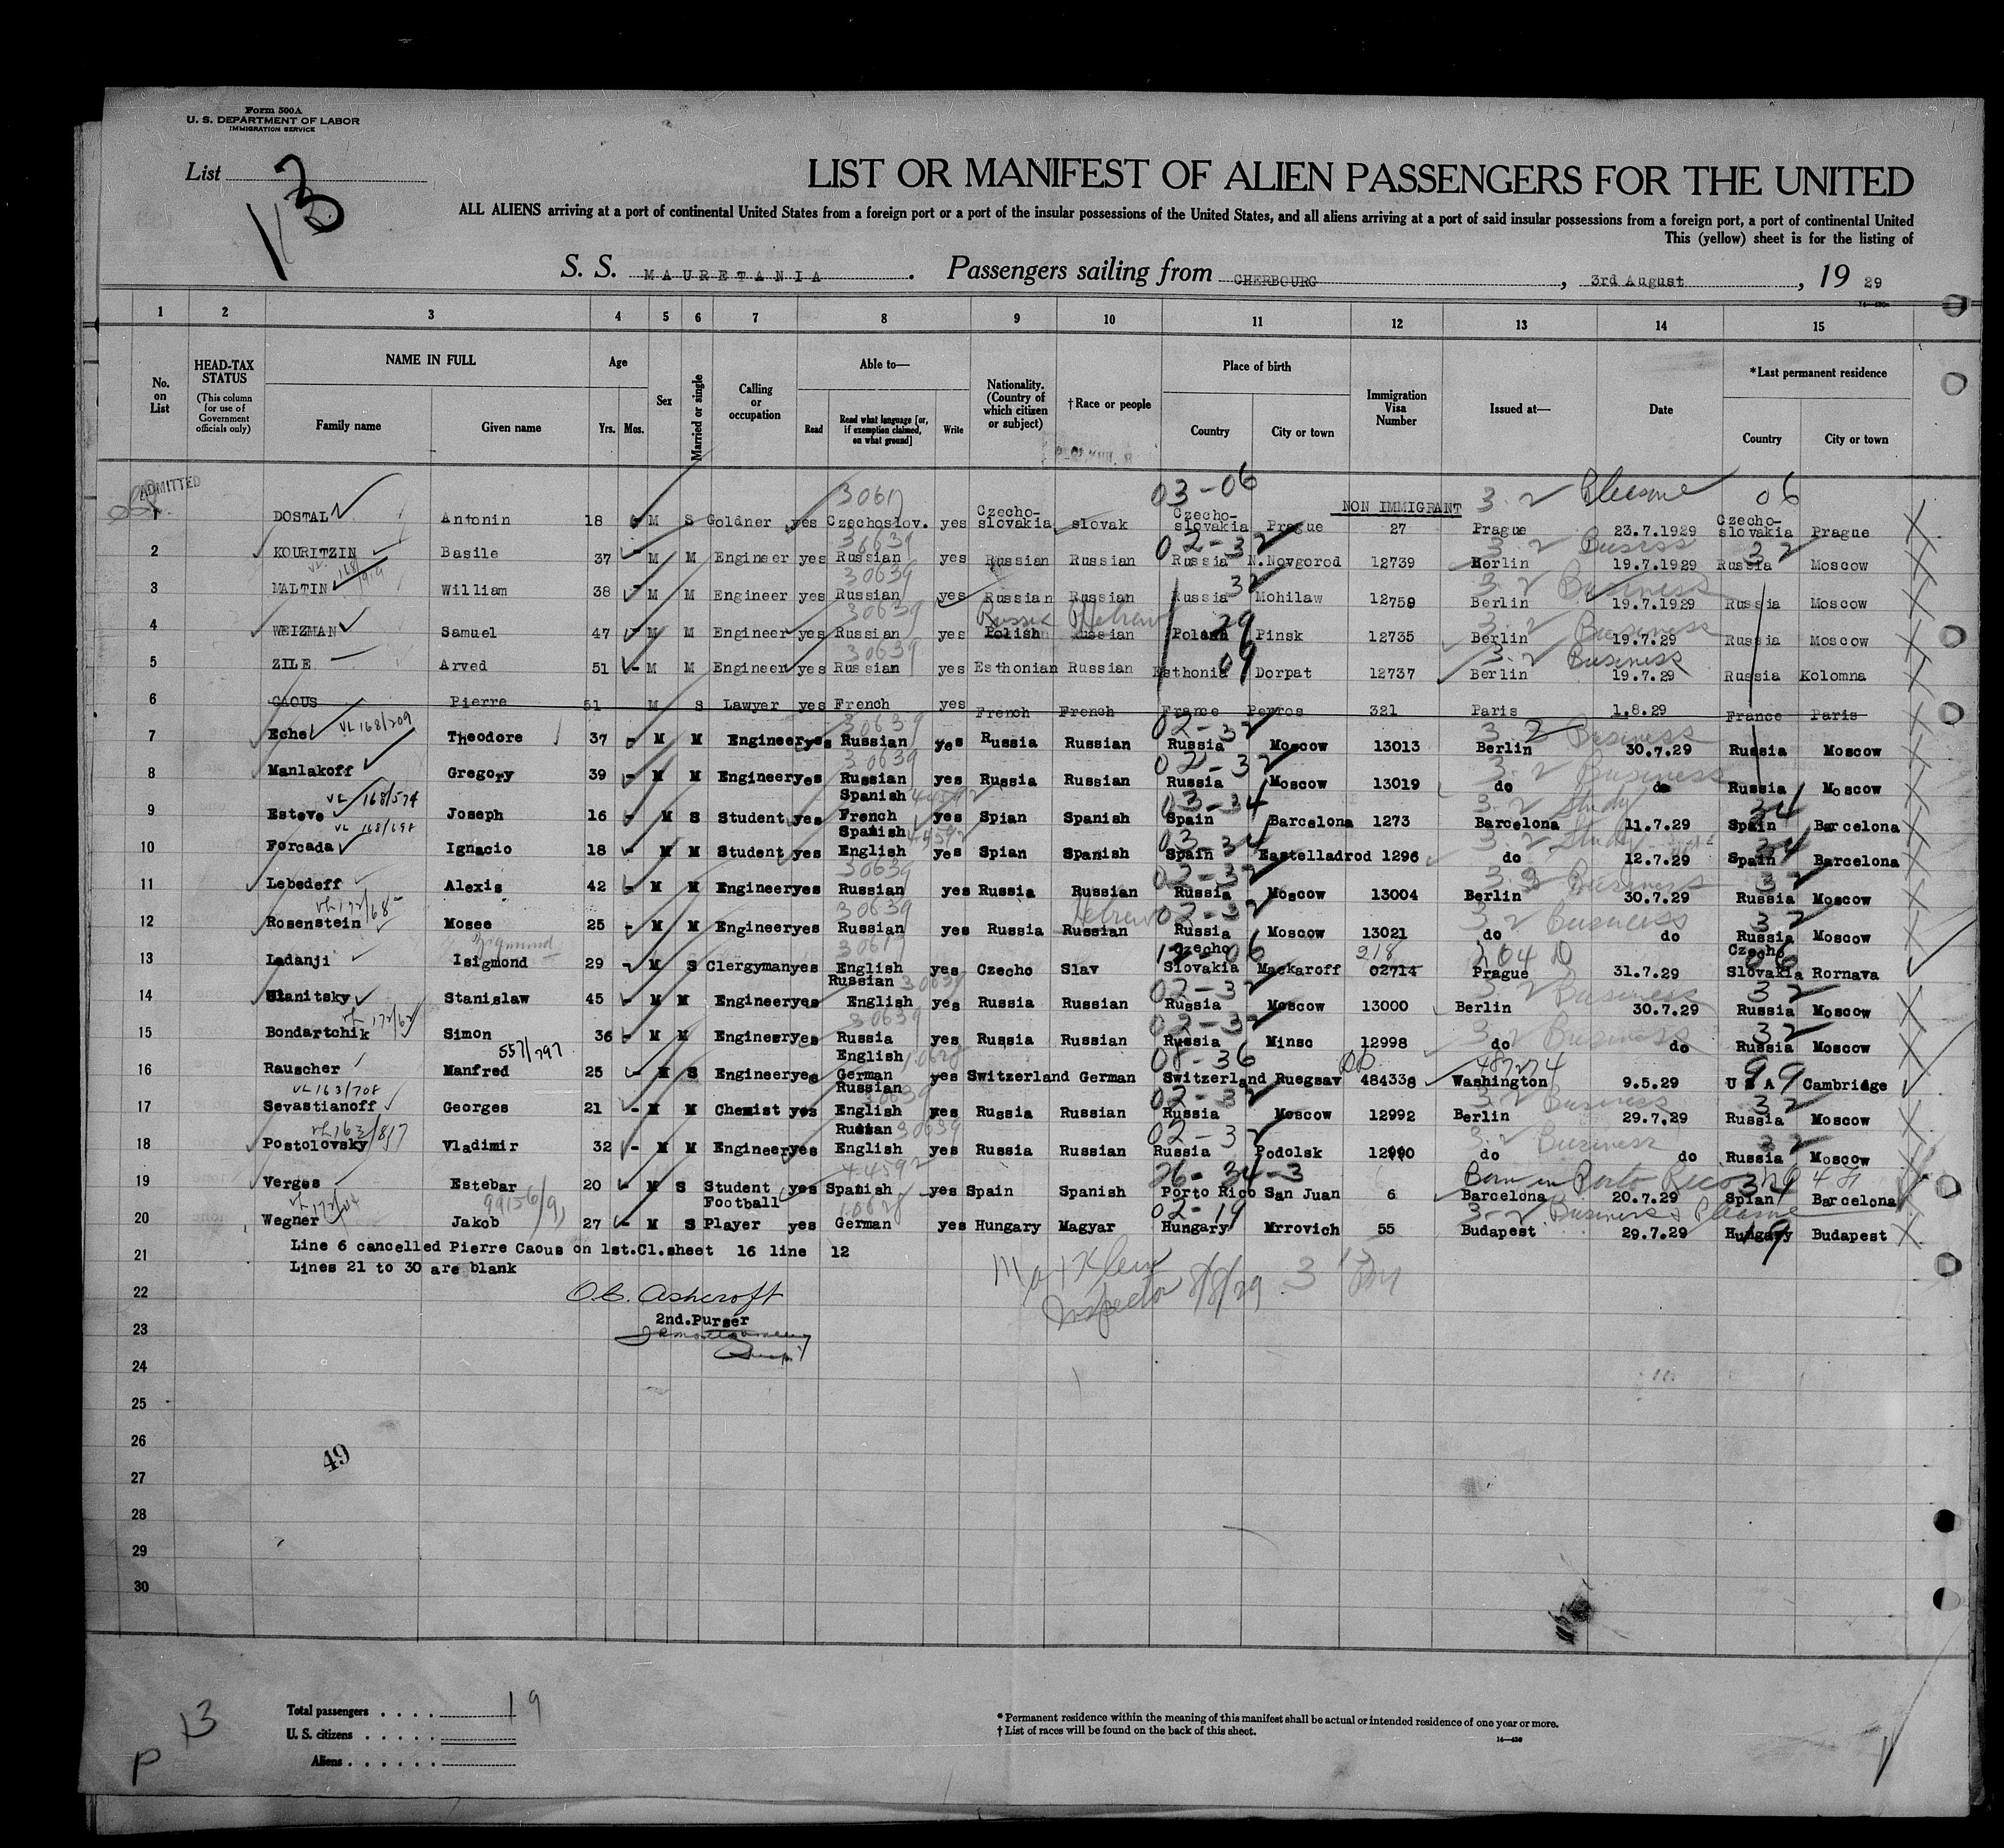 Form 500A
U. S. DEPARTMENT OF LABOR
IMMIGRATION SERVICE
List 13
LIST OR MANIFEST OF ALIEN PASSENGERS FOR THE UNITED
ALL ALIENS arriving at a port of continental United States from a foreign port or a port of the insular possessions of the United States, and all aliens arriving at a port of said insular possessions from a foreign port, a port of continental United
This (yellow) sheet is for the listing of
S. S. MAURETANIA . Passengers sailing from CHERBOURG , 3rd August , 19 29
1 2 3 4 5 6 7 8 9 10 11 12 13 14 15
No. on List
HEAD-TAX STATUS (This column for use of Government officials only)
NAME IN FULL Family name Given name
Age Yrs. Mos.
Sex
Married or single
Calling or occupation
Able to— Read Read what language [or, if exemption claimed, on what ground] Write
Nationality. (Country of which citizen or subject)
†Race or people
Place of birth Country City or town
Immigration Visa Number
Issued at—
Date
*Last permanent residence Country City or town
ADMITTED
30617 03-06 NON IMMIGRANT 3.2 Pleasure 06
1 DOSTAL Antonin 18 M S Goldner yes Czechoslov. yes Czecho-slovakia slovak Czecho-slovakia Prague 27 Prague 23.7.1929 Czecho-slovakia Prague
30639 02-32 3.2 32
2 KOURITZIN Basile 37 M M Engineer yes Russian yes Russian Russian Russia N.Novgorod 12739 Berlin 19.7.1929 Russia Moscow
30639 32 3.2 Business
3 MALTIN William 38 M M Engineer yes Russian yes Russian Russian Russia Mohilaw 12759 Berlin 19.7.1929 Russia Moscow
30639 Hebrew 29 3.2 Business
4 WEIZMAN Samuel 47 M M Engineer yes Russian yes Polish Russian Poland Pinsk 12735 Berlin 19.7.29 Russia Moscow
30639 09 3.2 Business
5 ZILE Arved 51 - M M Engineer yes Russian yes Esthonian Russian Esthonia Dorpat 12737 Berlin 19.7.29 Russia Kolomna
6 CAOUS Pierre 51 M S Lawyer yes French yes French French France Perros 321 Paris 1.8.29 France Paris
VL 168/209 30639 02-32 3.2 Business
7 Eche Theodore 37 - M M Engineer yes Russian yes Russia Russian Russia Moscow 13013 Berlin 30.7.29 Russia Moscow
30639 02-32 3.2 Business
8 Manlakoff Gregory 39 - M M Engineer yes Russian yes Russia Russian Russia Moscow 13019 do do Russia Moscow
VL 168/574 Spanish 44592 03-34 3.2 Study 34
9 Esteve Joseph 16 - M S Student yes French yes Spian Spanish Spain Barcelona 1273 Barcelona 11.7.29 Spain Barcelona
VL 168/698 Spanish 44592 03-34 3.2 Study 34
10 Forcada Ignacio 18 - M M Student yes English yes Spian Spanish Spain Eastelladrod 1296 do 12.7.29 Spain Barcelona
30639 02-32 Business 32
11 Lebedeff Alexis 42 - M M Engineer yes Russian yes Russia Russian Russia Moscow 13004 Berlin 30.7.29 Russia Moscow
30639 Hebrew 02-32 3.2 Business 32
12 Rosenstein Mosee 25 - M M Engineer yes Russian yes Russia Russian Russia Moscow 13021 do do Russia Moscow
Sigmund 30617 06 218 06
13 Ladanji Isigmond 29 - M S Clergyman yes English yes Czecho Slav Czecho Slovakia Mackaroff 02714 Prague 31.7.29 Czecho Slovakia Rornava
Russian 30639 02-32 3.2 Business 32
14 Stanitsky Stanislaw 45 - M M Engineer yes English yes Russia Russian Russia Moscow 13000 Berlin 30.7.29 Russia Moscow
30639 02-32 3.2 Business 32
15 Bondartchik Simon 36 - M M Engineer yes Russia yes Russia Russian Russia Minsc 12998 do do Russia Moscow
557/797 English 08-36 99
16 Rauscher Manfred 25 - M S Engineer yes German yes Switzerland German Switzerland Ruegsav 484338 Washington 9.5.29 U S A Cambridge
VL 163/708 Russian 30639 02-32 3.2 Business 32
17 Sevastianoff Georges 21 - M M Chemist yes English yes Russia Russian Russia Moscow 12992 Berlin 29.7.29 Russia Moscow
VL 163/817 Russian 30639 02-32 3.2 Business 32
18 Postolovsky Vladimir 32 - M M Engineer yes English yes Russia Russian Russia Podolsk 12990 do do Russia Moscow
44592 26-34-3 Born in Porto Rico 34
19 Verges Estebar 20 - M S Student yes Spanish yes Spain Spanish Porto Rico San Juan 6 Barcelona 20.7.29 Spian Barcelona
02-19 3-2 Business & Pleasure 19
20 Wegner Jakob 27 - M S Football Player yes German yes Hungary Magyar Hungary Mrrovich 55 Budapest 29.7.29 Hungary Budapest
Line 6 cancelled Pierre Caous on 1st.Cl.sheet 16 line 12
21 Lines 21 to 30 are blank
22 O.E. Ashcroft
2nd.Purser
Inspector 8/8/29
23
24
25
26
49
27
28
29
30
13
P
Total passengers 19
U. S. citizens
Aliens
* Permanent residence within the meaning of this manifest shall be actual or intended residence of one year or more.
† List of races will be found on the back of this sheet.